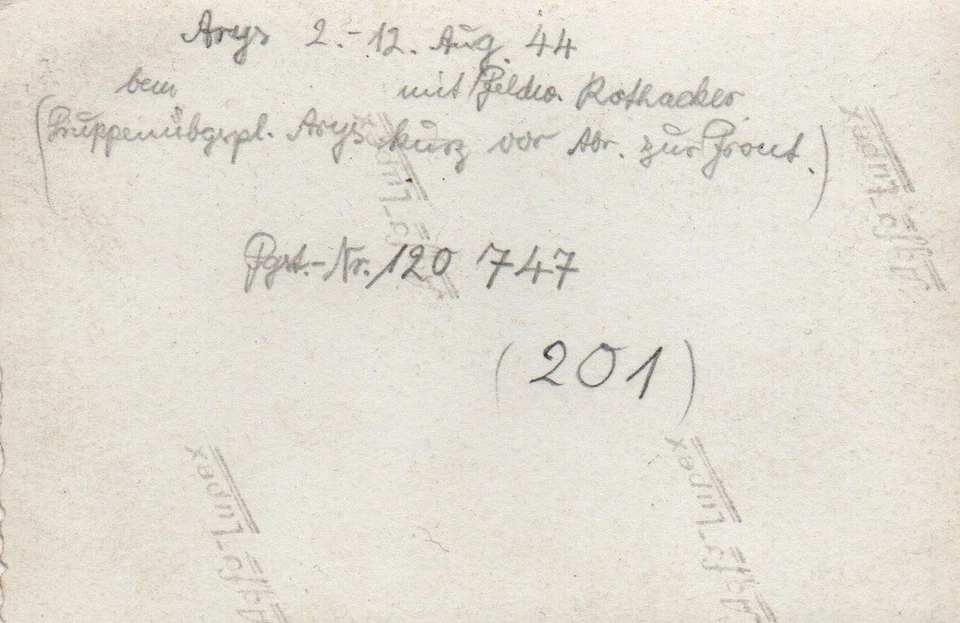 Arys 2.-12. Aug. 44
beim mit Feldw. Rothacker
(Truppenübgspl. Arys kurz vor Abr. zur Front.)
Fgst.-Nr. 120 747
(201)
Agfa-Lupex
Agfa-Lupex
Agfa-Lupex
Agfa-Lupex